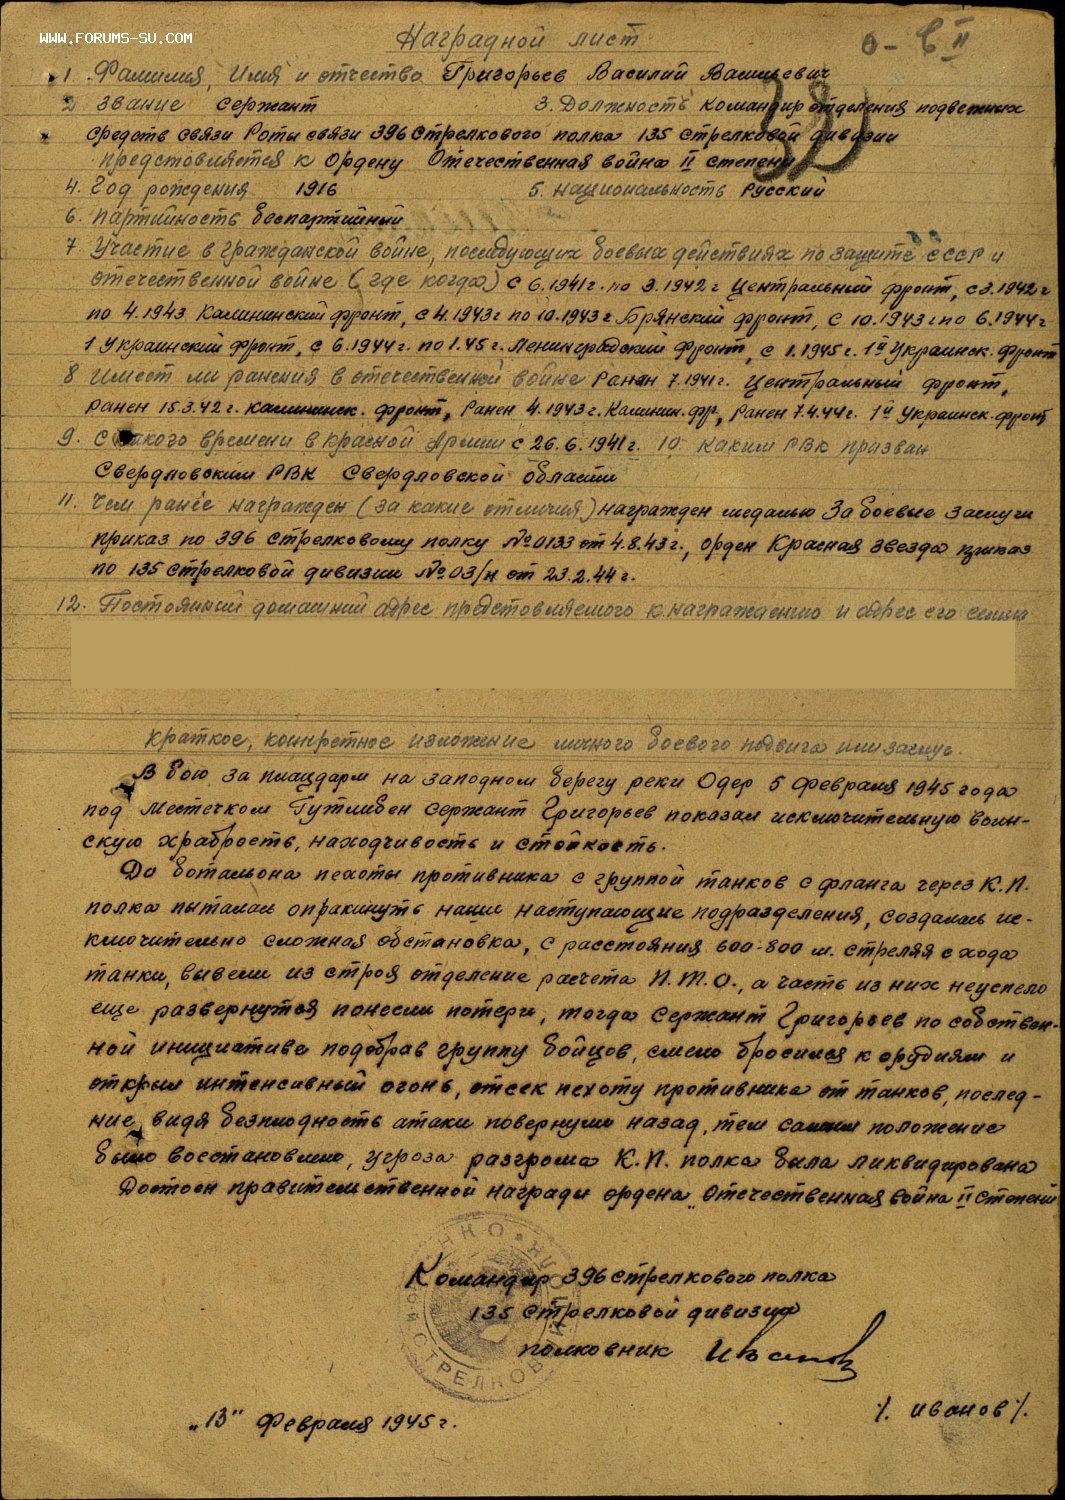 WWW.FORUMS-SU.COM
Наградной лист
о-в II
1. Фамилия, Имя и отчество Григорьев Василий Васильевич
2 звание сержант 3. Должность командир отделения подвижных
средств связи Роты связи 396 стрелкового полка 135 стрелковой дивизии
представляется к ордену Отечественная война II степени
4. Год рождения 1916 5. национальность Русский
6. партийность беспартийный
7. Участие в гражданской войне, последующих боевых действиях по защите СССР и
отечественной войне (где когда) с 6.1941г. по 3.1942г Центральный фронт, с 3.1942г
по 4.1943 Калининский фронт, с 4.1943г по 10.1943г. Брянский фронт, с 10.1943г по 6.1944г
1 Украинский фронт, с 6.1944г. по 1.45г. Ленинградский фронт, с 1.1945г. 1й Украинск. фронт
8 Имеет ли ранения в отечественной войне Ранен 7.1941г. Центральный фронт,
ранен 15.3.42г. калининск. фронт, Ранен 4.1943г. Калинин. фр, Ранен 7.4.44г. 1й Украинск. фронт
9. С какого времени в красной Армии с 26.6.1941г. 10. каким РВК призван
Свердловским РВК Свердловской области
11. Чем ранее награжден (за какие отличия) награжден медалью За боевые заслуги
приказ по 396 стрелковому полку №0133 от 4.8.43г., орден Красная звезда приказ
по 135 стрелковой дивизии №03/н от 23.2.44г.
12. Постоянный домашний адрес представляемого к награждению и адрес его семьи
краткое, конкретное изложение личного боевого подвига или заслуг.
В бою за плацдарм на западном берегу реки Одер 5 февраля 1945 года
под местечком Гутлибен сержант Григорьев показал исключительную воин-
скую храбрость, находчивость и стойкость.
До батальона пехоты противника с группой танков с фланга через К.П.
полка пыталась опракинуть наши наступающие подразделения, создалась ис-
ключительно сложная обстановка, с расстояния 600-800 м. стреляя с хода
танки, вывели из строя отделение расчета П.Т.О., а часть из них неуспело
еще развернутся понесли потери, тогда сержант Григорьев по собствен-
ной инициативе подобрав группу бойцов, смело бросился к орудиям и
открыл интенсивный огонь, отсек пехоту противника от танков, послед-
ние, видя безплодность атаки повернули назад, тем самым положение
было восстановлено, угроза разгрома К.П. полка была ликвидирована
Достоен правительственной награды ордена "Отечественная война II степени
Командир 396 стрелкового полка
135 стрелковой дивизии
полковник Иванов
/. иванов /.
"13" февраля 1945г.